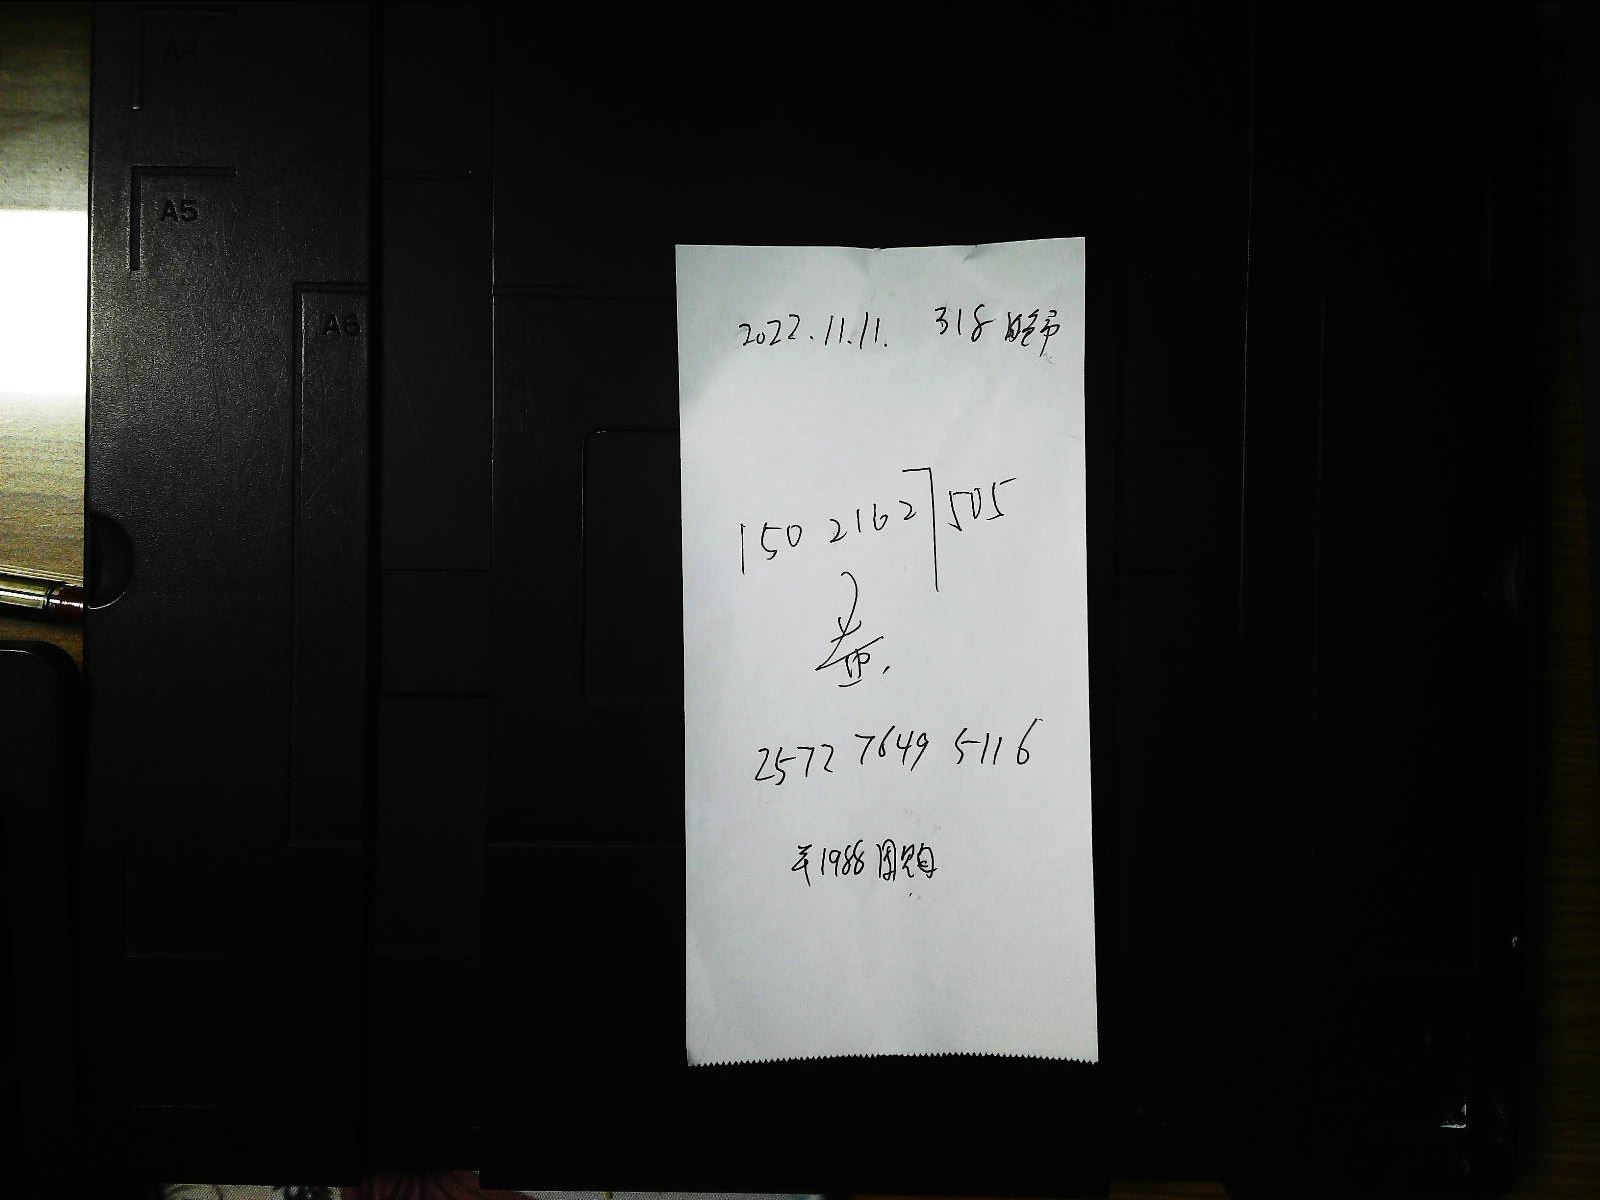 A4
A5
A6
2022.11.11. 318
150 2162 7505
2572 7649 5116
羊1988团购